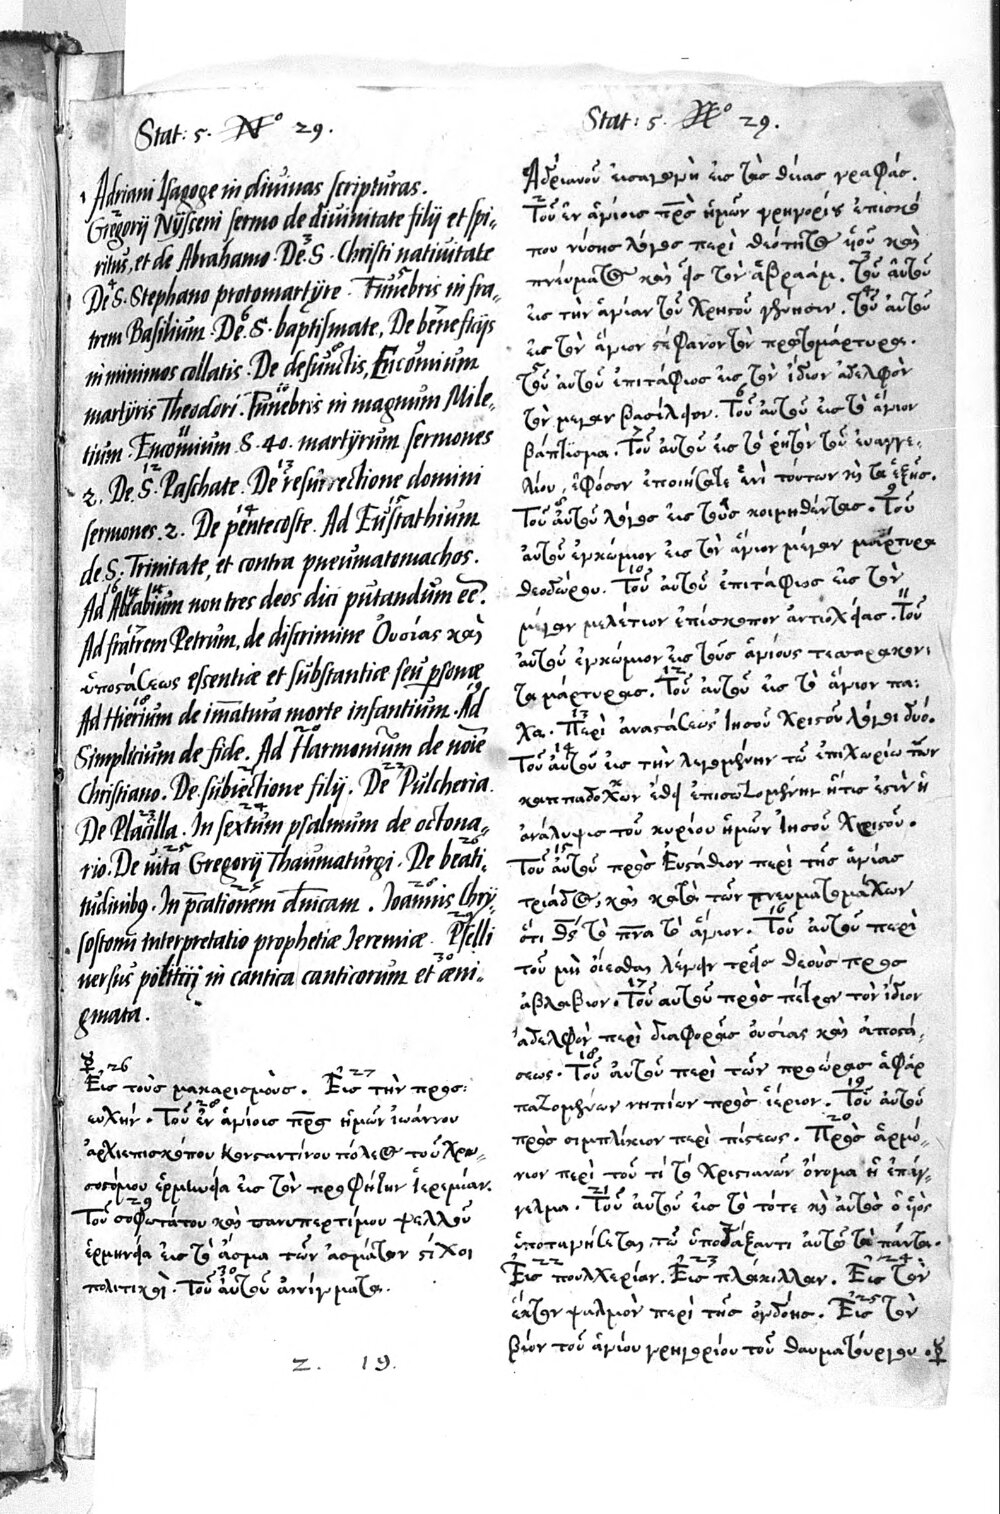 Stat: 5. No 29.
Adriani Isagoge in diuinas scripturas.
Gregorij Nysseni sermo de diuinitate filij et spi-
ritus, et de Abrahamo. De S. Christi natiuitate
De S. Stephano protomartyre. Funebris in fra-
trem Basilium. De S. baptismate, De beneficijs
in minimos collatis. De defunctis, Encomium
martyris Theodori. Funebris in magnum Mile-
tium. Encomium S. 40. martyrum sermones
2. De S. Paschate. De resurrectione domini
sermones. 2. De pentecoste. Ad Eustathium
de S. Trinitate, et contra pneumatomachos.
Ad Ablabium non tres deos dici putandum eē.
Ad fratrem Petrum, de discrimine Οὐσίας καὶ
ὑποστάσεως essentiæ et substantiæ seu psonæ
Ad Hierium de im̄atura morte infantium. Ad
Simplicium de fide. Ad Harmonium de noīe
Christiano. De subiectione filij. De Pulcheria.
De Placilla. In sextum psalmum de octona-
rio. De uita Gregorij Thaumaturgi. De beati-
tudinibꝰ. In p̄cationem dn̄icam. Ioannis Chry-
sostomi interpretatio prophetiæ Ieremiæ. Pselli
uersus politicij in cantica canticorum et æni-
gmata.
26 Εἰς τοὺς μακαρισμούς. 27 Εἰς τὴν προσ-
ευχήν. 28 Τοῦ ἐν ἁγίοις πρς ἡμῶν ἰωάννου
ἀρχιεπισκόπου κωνσταντίνου πόλεως τοῦ Χρυ-
σοστόμου ἑρμηνεία εἰς τὸν προφήτην Ἰερεμίαν.
29 Τοῦ σοφωτάτου καὶ πανυπερτίμου ψελλοῦ
ἑρμηνεία εἰς τὸ ἆσμα τῶν ἀσμάτων στίχοι
πολιτικοὶ. 30 Τοῦ αὐτοῦ αἰνίγματα.
2. 19.
Stat: 5. No 29.
Ἀδριανοῦ εἰσαγωγὴ εἰς τὰς θείας γραφάς.
2 Τοῦ ἐν ἁγίοις πρς ἡμῶν γρηγορίου ἐπισκό
που νύσης λόγος περὶ θεότητος υἱοῦ καὶ
πνεύματος καὶ εἰς τὸν ἀβραάμ. 3 Τοῦ αὐτοῦ
εἰς τὴν ἁγίαν τοῦ Χριστοῦ γέννησιν. 4 Τοῦ αὐτοῦ
εἰς τὸν ἅγιον στέφανον τὸν πρωτομάρτυρα.
5 Τοῦ αὐτοῦ ἐπιτάφιος εἰς τὸν ἴδιον ἀδελφὸν
τὸν μέγαν βασίλειον. 6 Τοῦ αὐτοῦ εἰς τὸ ἅγιον
βάπτισμα. 7 Τοῦ αὐτοῦ εἰς τὸ ῥητὸν τοῦ εὐαγγε-
λίου, ἐφόσον ἐποιήσατε ἑνὶ τούτων κὴ τὰ ἑξῆς.
8 Τοῦ αὐτοῦ λόγος εἰς τοὺς κοιμηθέντας. 9 Τοῦ
αὐτοῦ ἐγκώμιον εἰς τὸν ἅγιον μέγαν μάρτυρα
θεοδώρου. 10 Τοῦ αὐτοῦ ἐπιτάφιος εἰς τὸν
μέγαν μελέτιον ἐπίσκοπον ἀντιοχείας. 11 Τοῦ
αὐτοῦ ἐγκώμιον εἰς τοὺς ἁγίους τεσσαρακον-
τα μάρτυρας. 12 Τοῦ αὐτοῦ εἰς τὸ ἅγιον πά-
χα. 13 Περὶ ἀναστάσεως Ἰησοῦ Χριστοῦ λόγοι δύο.
14 Τοῦ αὐτοῦ εἰς τὴν λεγομένην τῷ ἐπιχωρίῳ τῶν
καππαδοκῶν ἔθει ἐπισωζομένην ἥτις ἐστὶν ἡ
ἀνάληψις τοῦ κυρίου ἡμῶν Ἰησοῦ Χριστοῦ.
15 Τοῦ αὐτοῦ πρὸς Εὐστάθιον περὶ τῆς ἁγίας
τριάδος, καὶ κατὰ τῶν πνευματομάχων
ὅτι θς τὸ πνα τὸ ἅγιον. 16 Τοῦ αὐτοῦ περὶ
τοῦ μὴ οἴεσθαι λέγειν τρεῖς θεοὺς πρὸς
ἀβλάβιον. 17 Τοῦ αὐτοῦ πρὸς πέτρον τὸν ἴδιον
ἀδελφὸν περὶ διαφορᾶς οὐσίας καὶ ὑποστά-
σεως. 18 Τοῦ αὐτοῦ περὶ τῶν προώρως ἀφαρ
παζομένων νηπίων πρὸς ἱέριον. 19 Τοῦ αὐτοῦ
πρὸς σιμπλίκιον περὶ πίστεως. 20 Πρὸς ἁρμό-
νιον περὶ τοῦ τί τὸ Χριστιανῶν ὄνομα ἢ ἐπάγ-
γελμα. 21 Τοῦ αὐτοῦ εἰς τὸ τότε κὴ αὐτὸς ὁ υἱὸς
ὑποταγήσεται τῷ ὑποτάξαντι αὐτῷ τὰ πάντα.
22 Εἰς πουλχερίαν. 23 Εἰς πλάκιλλαν. 24 Εἰς τὸν
ἕκτον ψαλμὸν περὶ τῆς ὀγδόης. 25 Εἰς τὸν
βίον τοῦ ἁγίου γρηγορίου τοῦ θαυματουργοῦ.